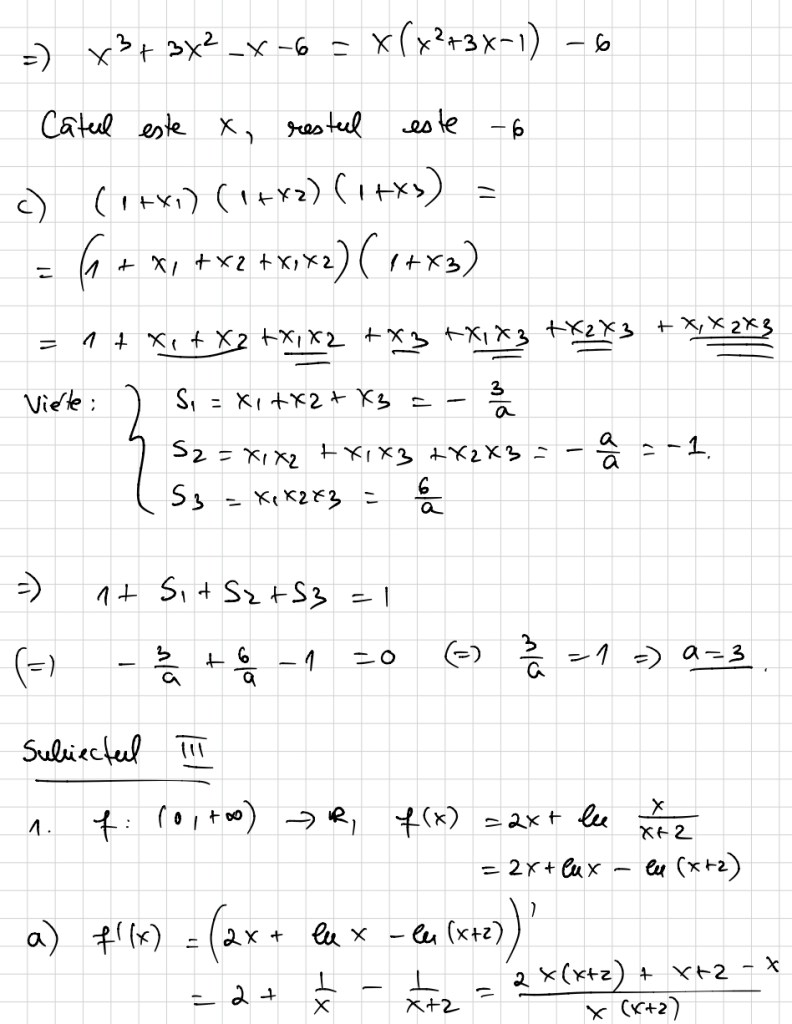 =) x³ + 3x² - x - 6 = x(x²+3x-1) - 6
Câtul este x, restul este -6
c) (1+x1)(1+x2)(1+x3) =
= (1 + x1 + x2 + x1x2)(1+x3)
= 1 + x1 + x2 + x1x2 + x3 + x1x3 + x2x3 + x1x2x3
Viète: { S1 = x1+x2+x3 = - 3/a
S2 = x1x2 + x1x3 + x2x3 = - a/a = -1.
S3 = x1x2x3 = 6/a
=) 1 + S1 + S2 + S3 = 1
(=) - 3/a + 6/a - 1 = 0 (=) 3/a = 1 => a=3.
Subiectul III
1. f: (0,+∞) → R, f(x) = 2x + ln x/(x+2)
= 2x + ln x - ln (x+2)
a) f'(x) = (2x + ln x - ln (x+2))'
= 2 + 1/x - 1/(x+2) = (2x(x+2) + x+2 - x)/(x(x+2))